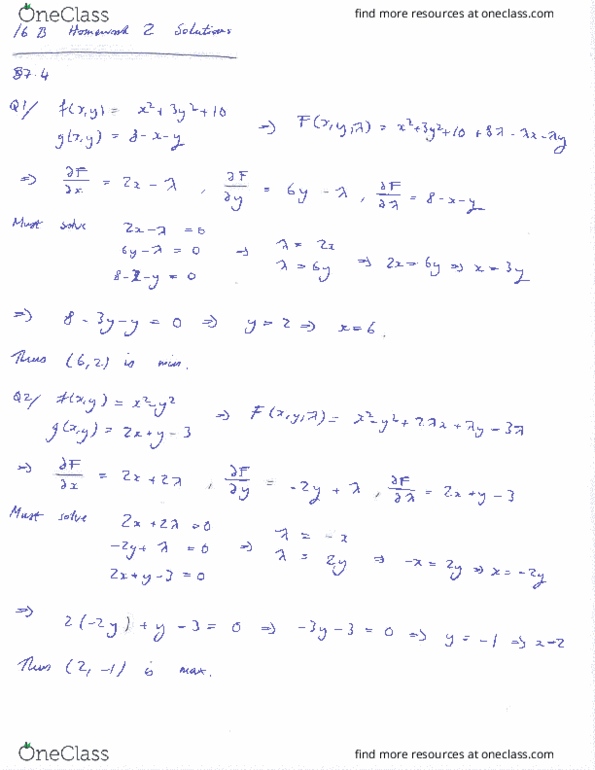 OneClass
find more resources at oneclass.com
16 B Homework 2 Solutions
§7.4
Q1/ f(x,y) = x²+3y²+10
g(x,y) = 8-x-y
⇒ F(x,y,λ) = x²+3y²+10+8λ-λx-λy
⇒ ∂F/∂x = 2x-λ , ∂F/∂y = 6y-λ , ∂F/∂λ = 8-x-y
Must solve 2x-λ = 0
6y-λ = 0 ⇒ λ = 2x
λ = 6y ⇒ 2x = 6y ⇒ x = 3y
8-x-y = 0
⇒ 8-3y-y = 0 ⇒ y = 2 ⇒ x = 6.
Thus (6,2) is min.
Q2/ f(x,y) = x²-y²
g(x,y) = 2x+y-3
⇒ F(x,y,λ) = x²-y²+2λx+λy-3λ
⇒ ∂F/∂x = 2x+2λ , ∂F/∂y = -2y+λ , ∂F/∂λ = 2x+y-3
Must solve 2x+2λ = 0
-2y+λ = 0 ⇒ λ = -x
λ = 2y ⇒ -x = 2y ⇒ x = -2y
2x+y-3 = 0
⇒ 2(-2y)+y-3 = 0 ⇒ -3y-3 = 0 ⇒ y = -1 ⇒ x=2
Thus (2,-1) is max.
OneClass
find more resources at oneclass.com